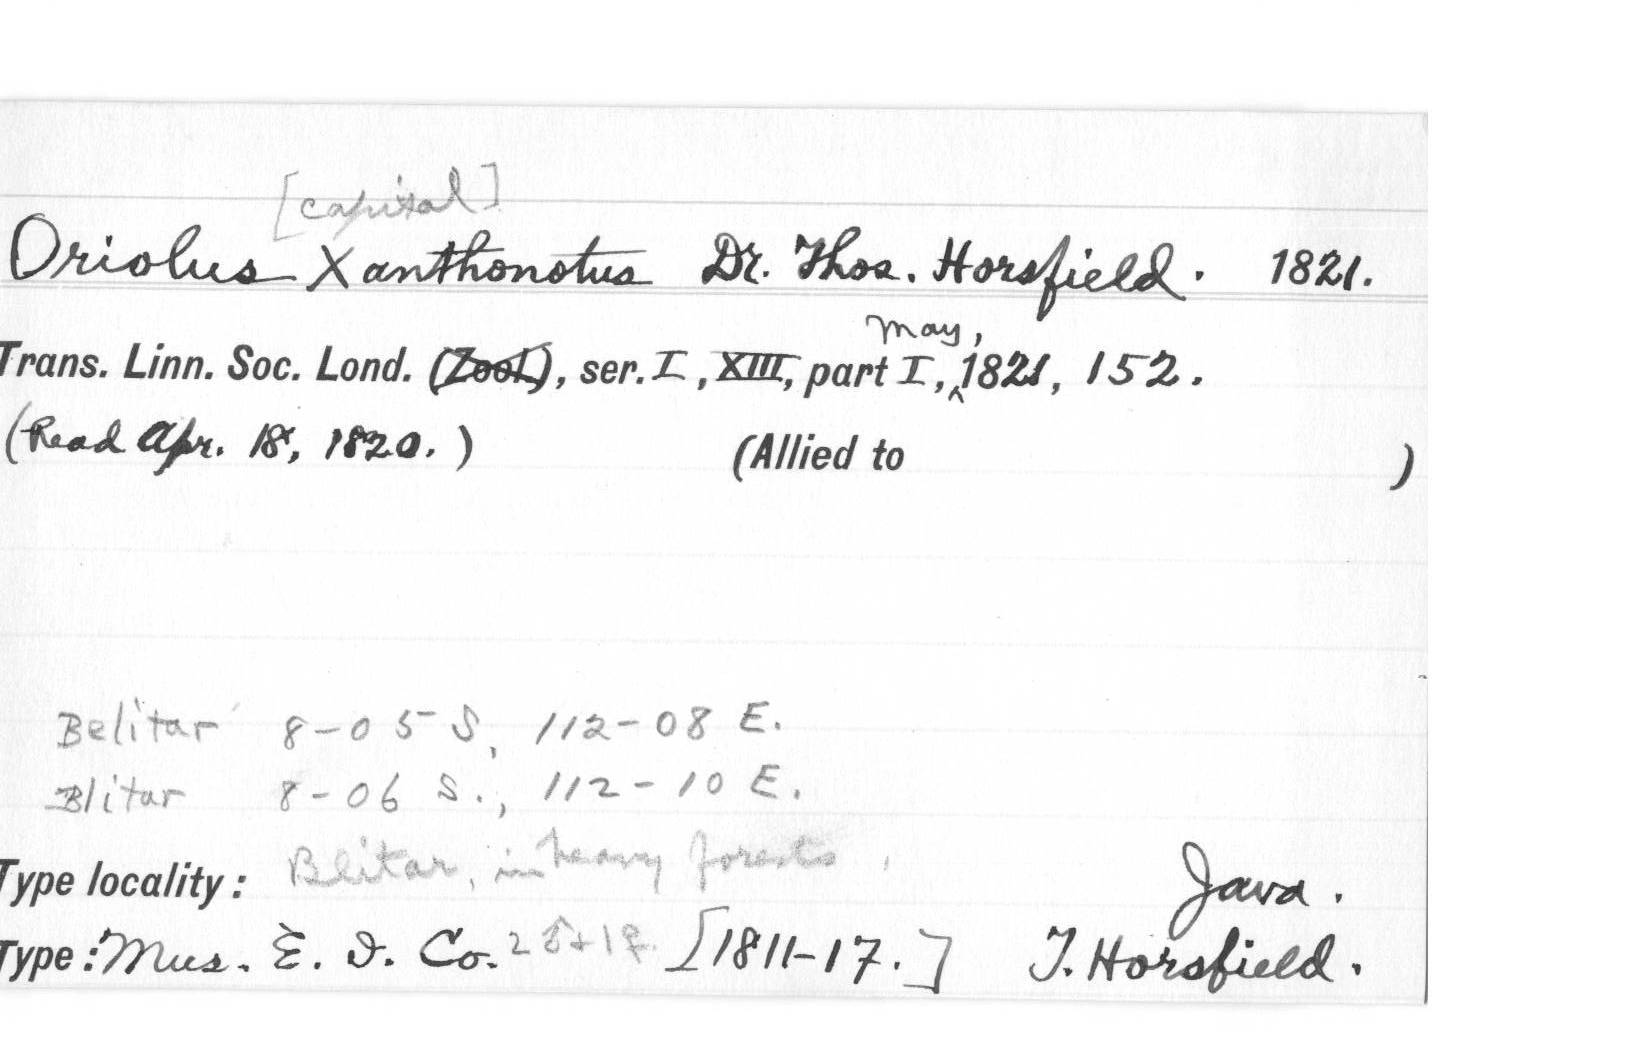 [capital]
Oriolus Xanthonotus Dr. Thos. Horsfield. 1821.
May,
Trans. Linn. Soc. Lond. (Zool.), ser. I, XIII, part I, ^1821, 152.
(Read Apr. 18, 1820.) (Allied to )
Belitar 8-05 S, 112-08 E.
Blitar 8-06 S., 112-10 E.
Type locality: Blitar, in heavy forests, Java.
Type: Mus. E. I. Co. 2♂+1♀. [1811-17.] T. Horsfield.